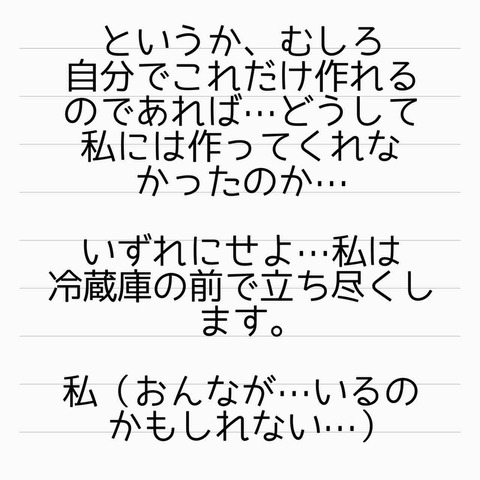 というか、むしろ
自分でこれだけ作れる
のであれば…どうして
私には作ってくれな
かったのか…
いずれにせよ…私は
冷蔵庫の前で立ち尽くし
ます。
私（おんなが…いるの
かもしれない…）